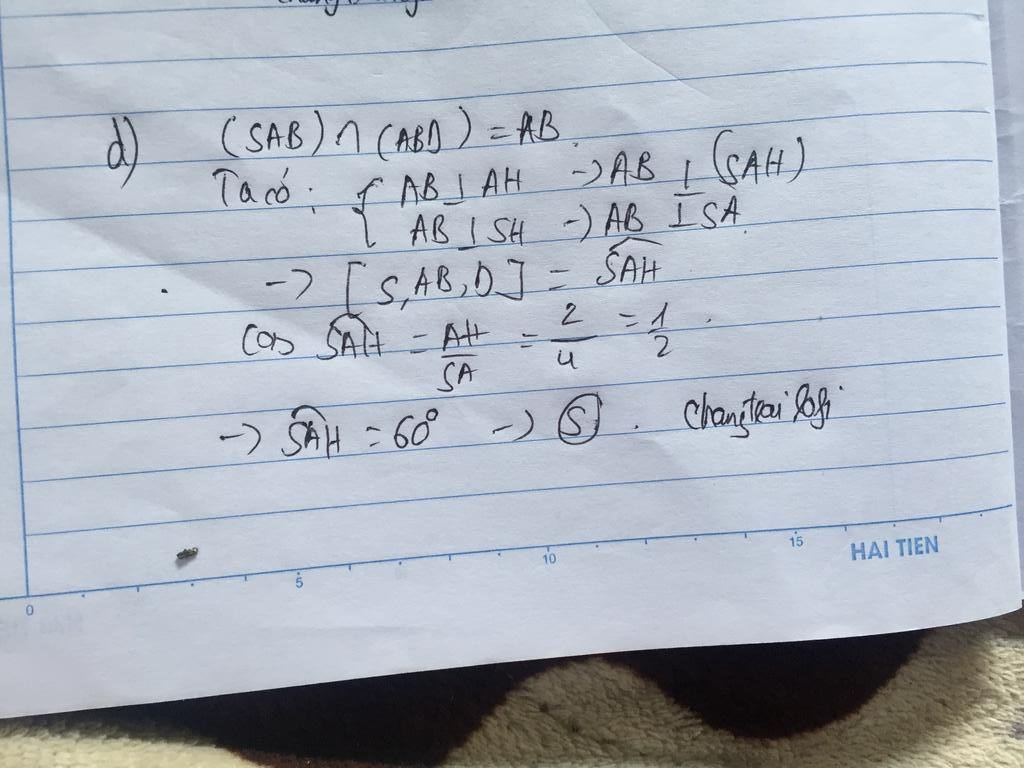 d) (SAB) ∩ (ABD) = AB.
Ta có: { AB ⊥ AH → AB ⊥ (SAH)
AB ⊥ SH → AB ⊥ SA.
→ [S, AB, D] = SAH
Cos SAH = AH/SA = 2/4 = 1/2.
→ SAH = 60° → S. Changtrai
0 5 10 15 HAI TIEN